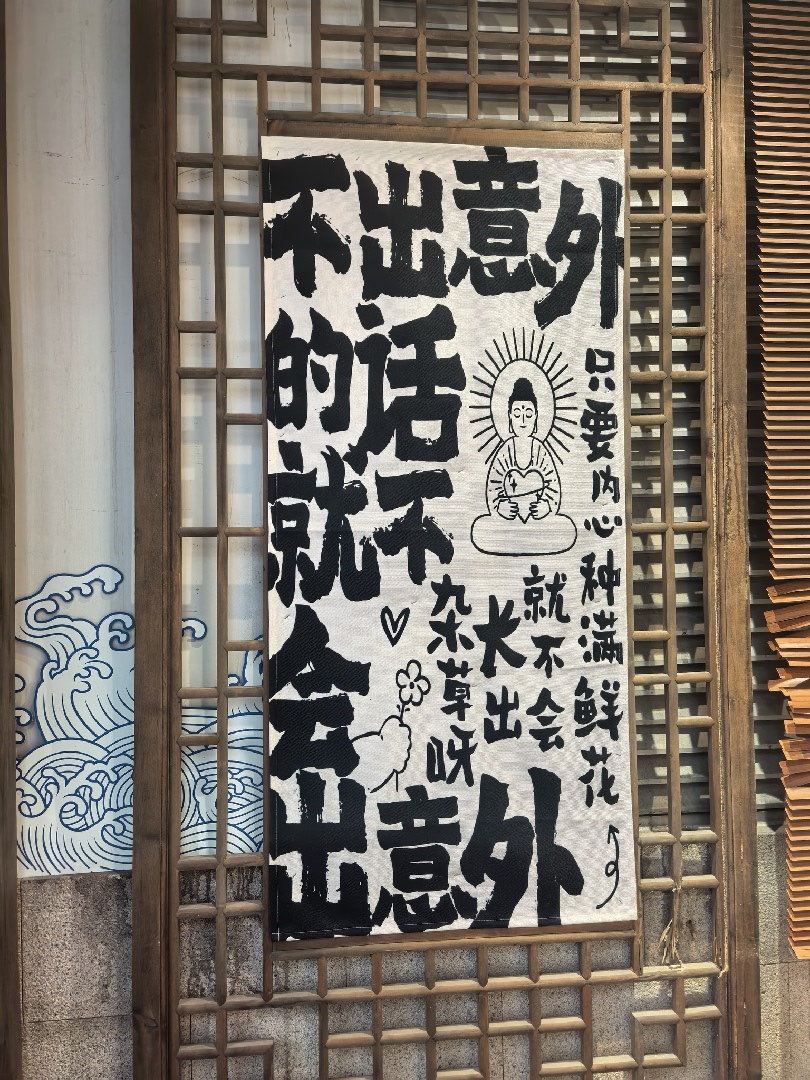 不出意外
的话
就不
会
出意外
只要内心种满鲜花
就不会
长出
杂草呀